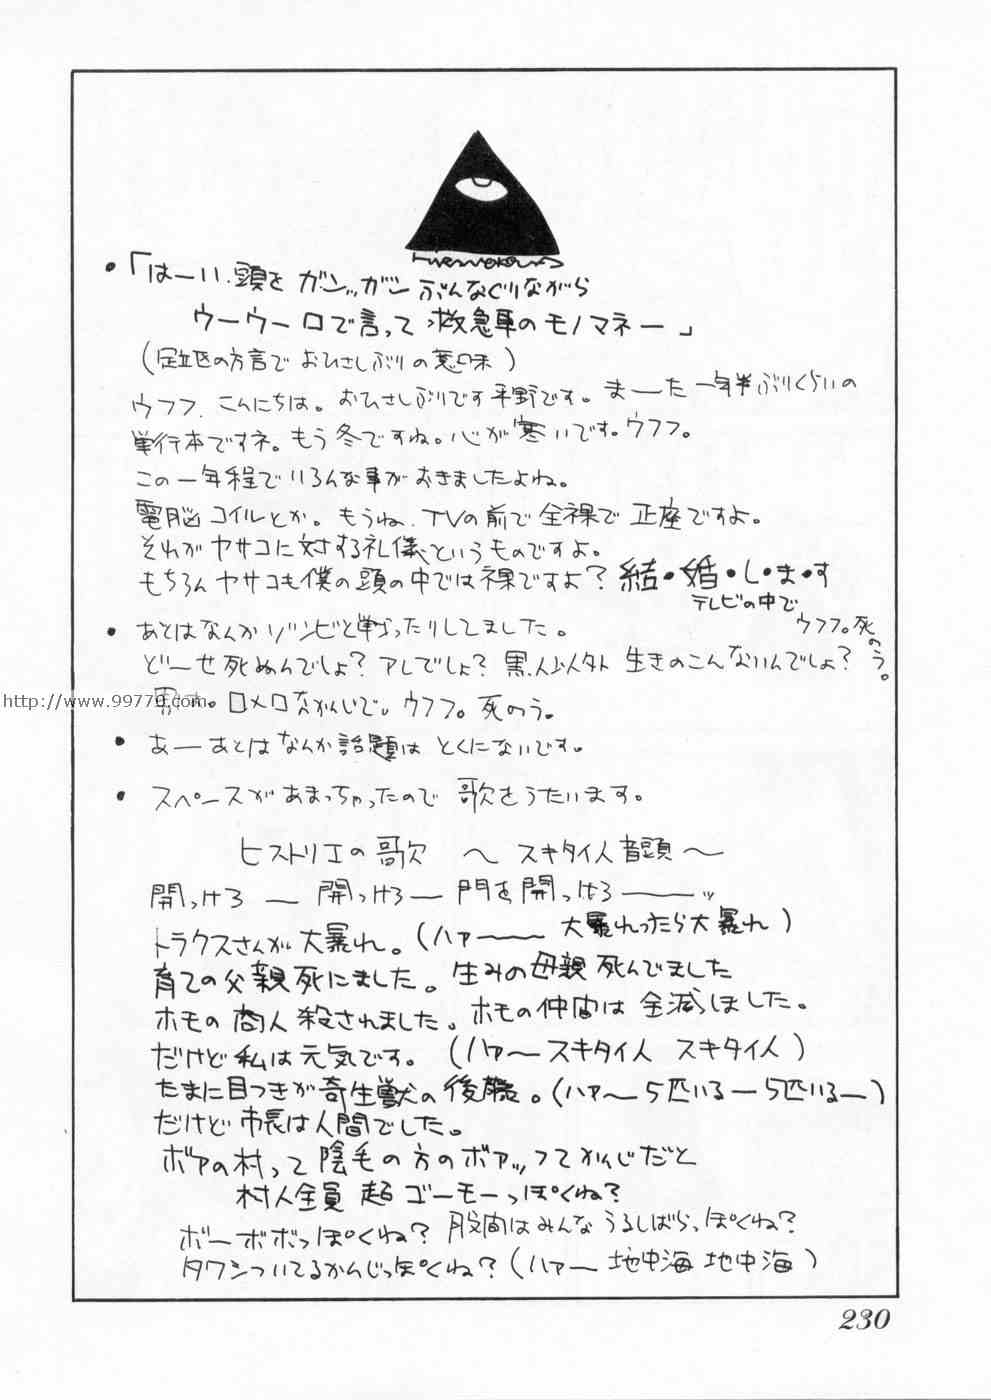 ・「はーい.頭を ガンッガン ぶんなぐりながら
ウーウー口で言って 救急車のモノマネー」
(足立区の方言で おひさしぶりの意味)
ウフフ.こんにちは。おひさしぶりです平野です。まーた一年半ぶりくらいの
単行本ですネ。もう冬ですね。心が寒いです。ウフフ。
この一年程でいろんな事がおきましたよね。
電脳コイルとか。もうね.TVの前で全裸で正座ですよ。
それがヤサコに対する礼儀というものですよ。
もちろんヤサコも僕の頭の中では裸ですよ?結・婚・し・ま・す
テレビの中で
・あとはなんかゾンビと戦ったりしてました。
ウフフ。死のう。
どーせ死ぬんでしょ?アレでしょ?黒人以外 生きのこんないんでしょ?
http://www.99770.com
。ロメロなかんじで。ウフフ。死のう。
・あーあとはなんか話題はとくにないです。
・スペースがあまっちゃったので 歌をうたいます。
ヒストリエの歌 〜 スキタイ人音頭〜
開っけろー 開っけろー門を開っけろーーッ
トラクスさんが大暴れ。(ハァーー 大暴れったら大暴れ)
育ての父親死にました。生みの母親死んでました
ホモの商人殺されました。ホモの仲間は全滅しました。
だけど私は元気です。(ハァ〜スキタイ人 スキタイ人)
たまに目つきが寄生獣の後藤。(ハァ〜5匹いるー5匹いるー)
だけど市長は人間でした。
ボアの村って陰毛の方のボアッフてかんじだと
村人全員 超ゴーモーっぽくね?
ボーボボっぽくね?股間はみんなうるしばらっぽくね?
タワシついてるかんじっぽくね?(ハァー地中海 地中海)
230